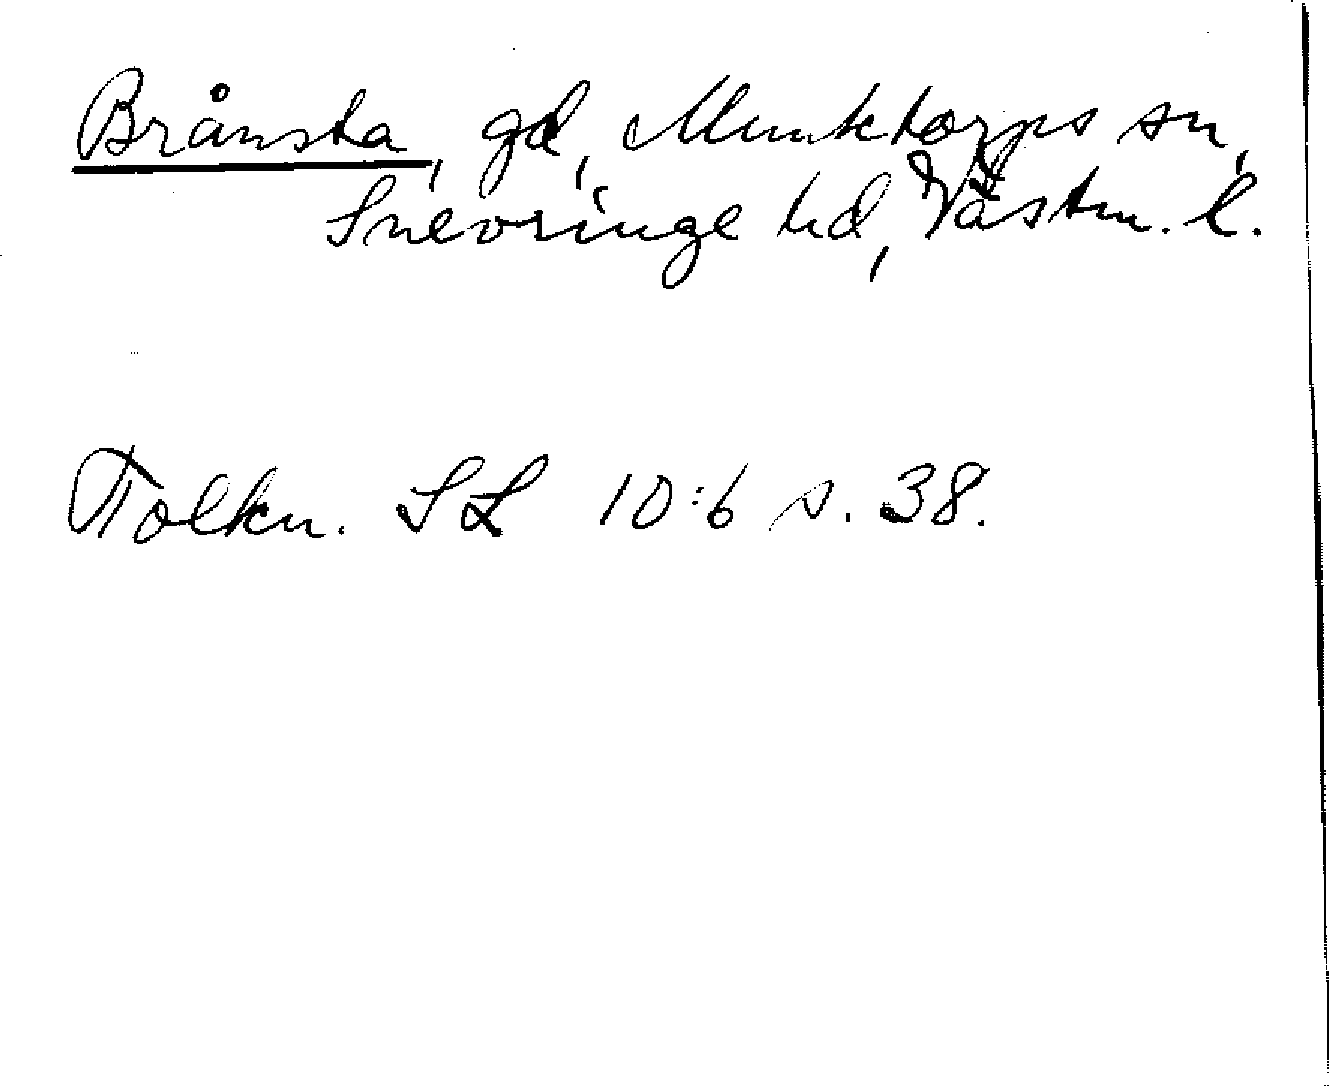 Brånsta, gd, Munktorps sn,
Snevringe hd, Västm. l.
Tolkn. SL 10:6 s. 38.